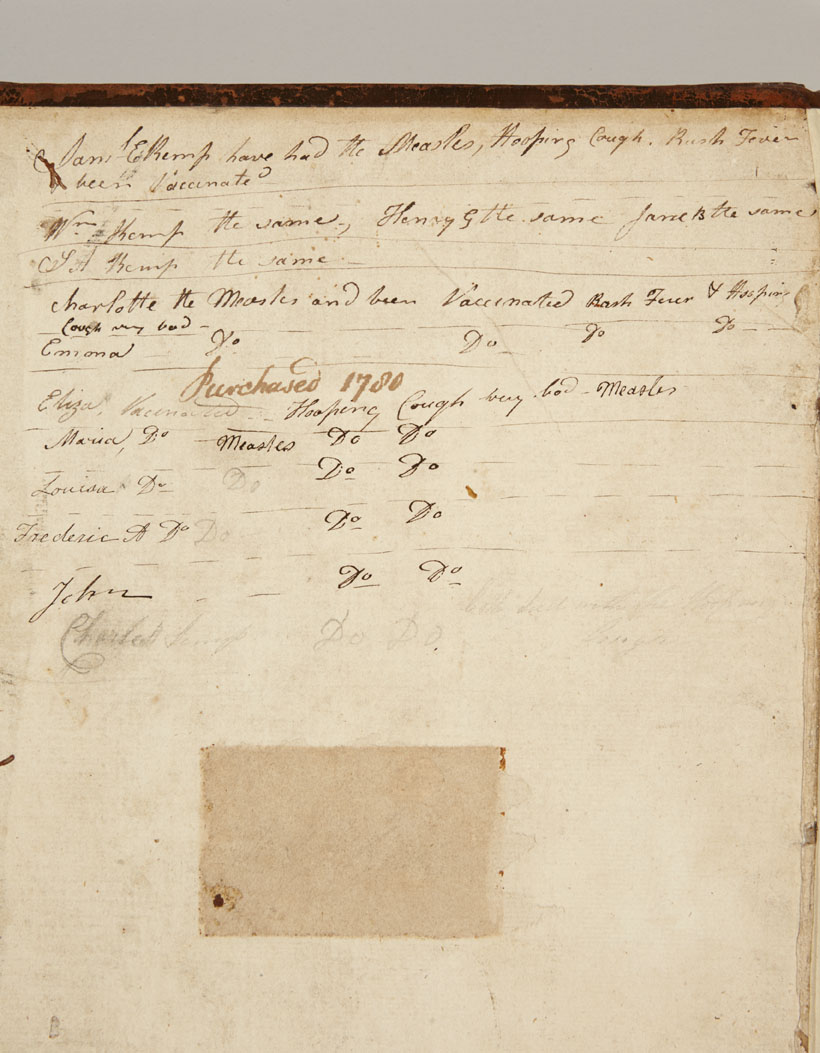 Saml E Kemp have had the Measles, Hooping Cough. Rash Fever
& been Vaccinated
Wm Kemp the same, Henry G the same Jane B the same
S A Kemp the same
Charlotte the Measles and been Vaccinated Rash Fever & Hooping
Cough very bad
Emma Do Do Do Do
Purchased 1780
Eliza, Vaccinated Hooping Cough very bad - Measles
Maria, Do Measles Do Do
Louisa Do Do Do Do
Frederic A Do Do Do Do
John Do Do
Charles Kemp Do Do
Cough